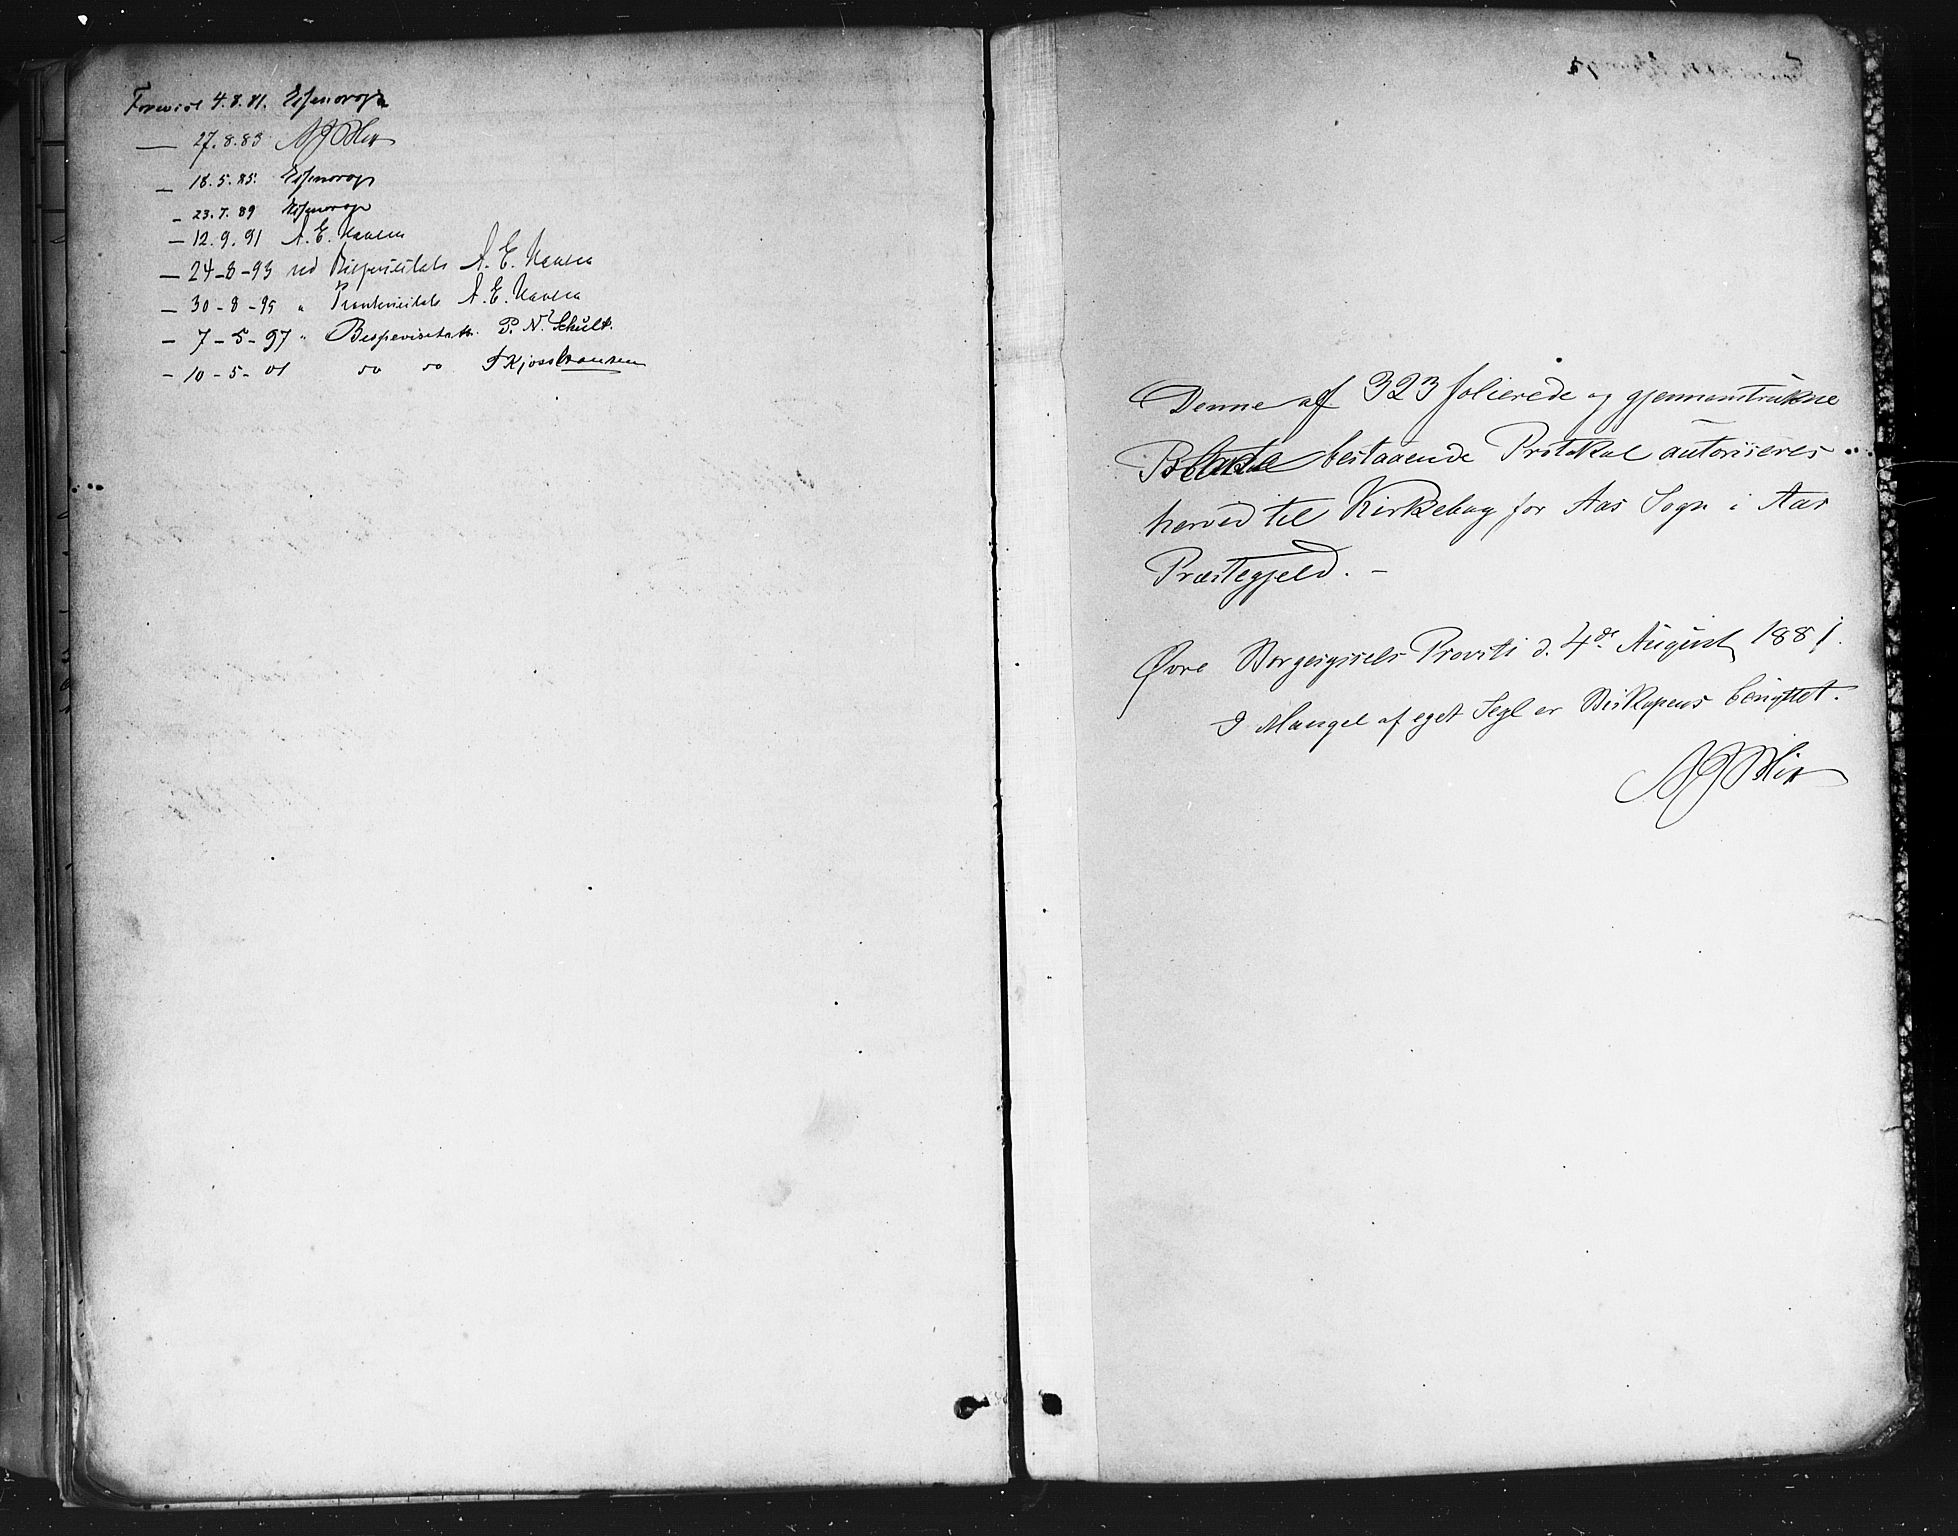 Forevist 4.8.81. Essendrop
— 27.8.83 NJBlix
— 18.5.85. Essendrop
— 23.7.89 Essendrop
— 12.9.91 A. E. Hansen
— 24-8-93 ved Bispevisitats A. E. Hansen
— 30-8-95 " Provstevisitats A. E. Hansen
— 7-5-97 " Bispevisitats. P. N. Schult.
— 10-5-01 do do
Denne af 323 folierede og gjennemtrukne
Blade bestaaende Protokol autoriseres
herved til Kirkebog for Aas Sogn i Aas
Præstegjeld. –
Øvre Borgesyssels Provsti d. 4de August 1881.
I Mangel af eget Segl er Biskopens benyttet.
NJBlix